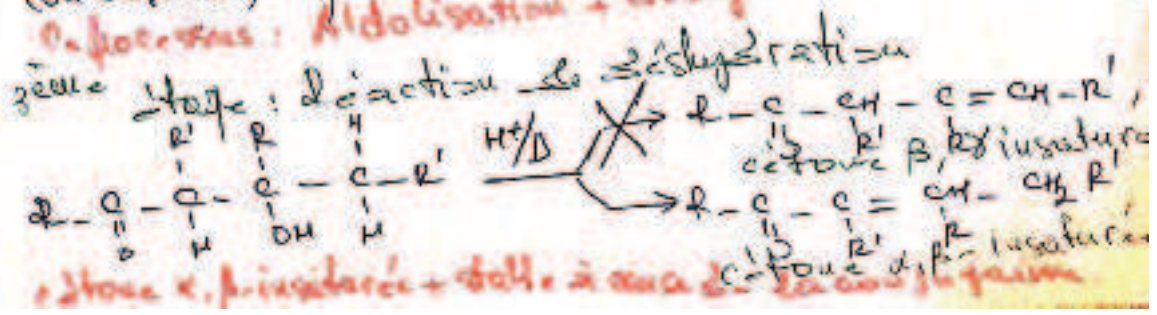 processus : Aldolisation +
2ème étape : Réaction de déshydratation
R' R H
R - C - C - C - C - R' H+/Δ R - C - CH - C = CH - R',
O H OH H O R' R
cétone β, γ insaturée
R - C - C = CH - CH2 R'
O R' R
cétone α, β - insaturée
cétone α, β-insaturée + stable à cause de la conjugaison